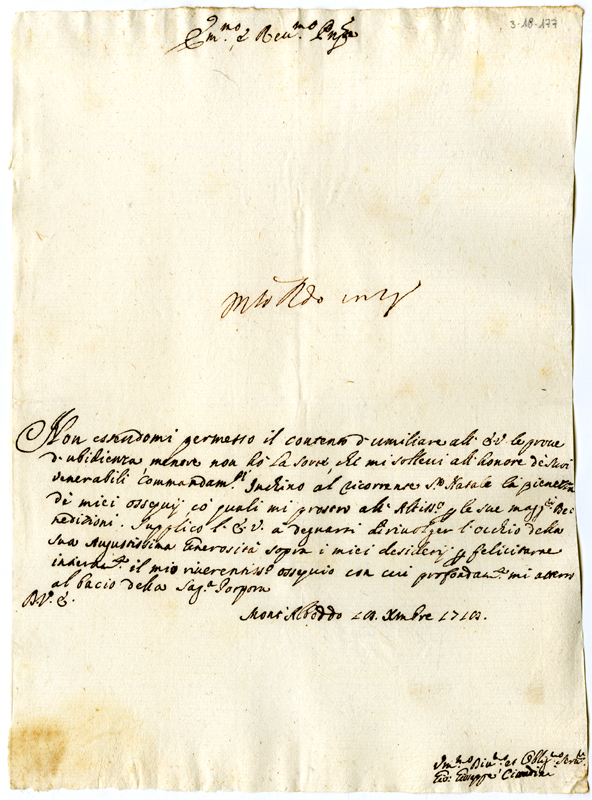 3-18-177
Em.mo e Rev.mo Pnpe
Mto Rdo
Non essendomi permesso il contento d'umiliare all' E.V. le prove
d'ubidienza, mentre non hò la sorte, che mi sollevi all'honore de suoi
venerabili commandam.ti Inchino al ricorrente S.to Natale la pienezza
de miei ossequij cò quali mi prostro all' Altiss.o p le sue magg.ri Be-
nedizioni. Supplico l' E.V. a degnarsi di rivolger l'occhio della
sua Augustissima Generosità sopra i miei desiderij p felicitarne
il mio riverentiss.o ossequio con cui profondam.te mi atterro
al bacio della Sag.a Porpora
D.V.E.
Mont'Alboddo 10. Xmbre 1710.
Um.mo Div.mo et Oblig.mo Serv.re
Giuseppe